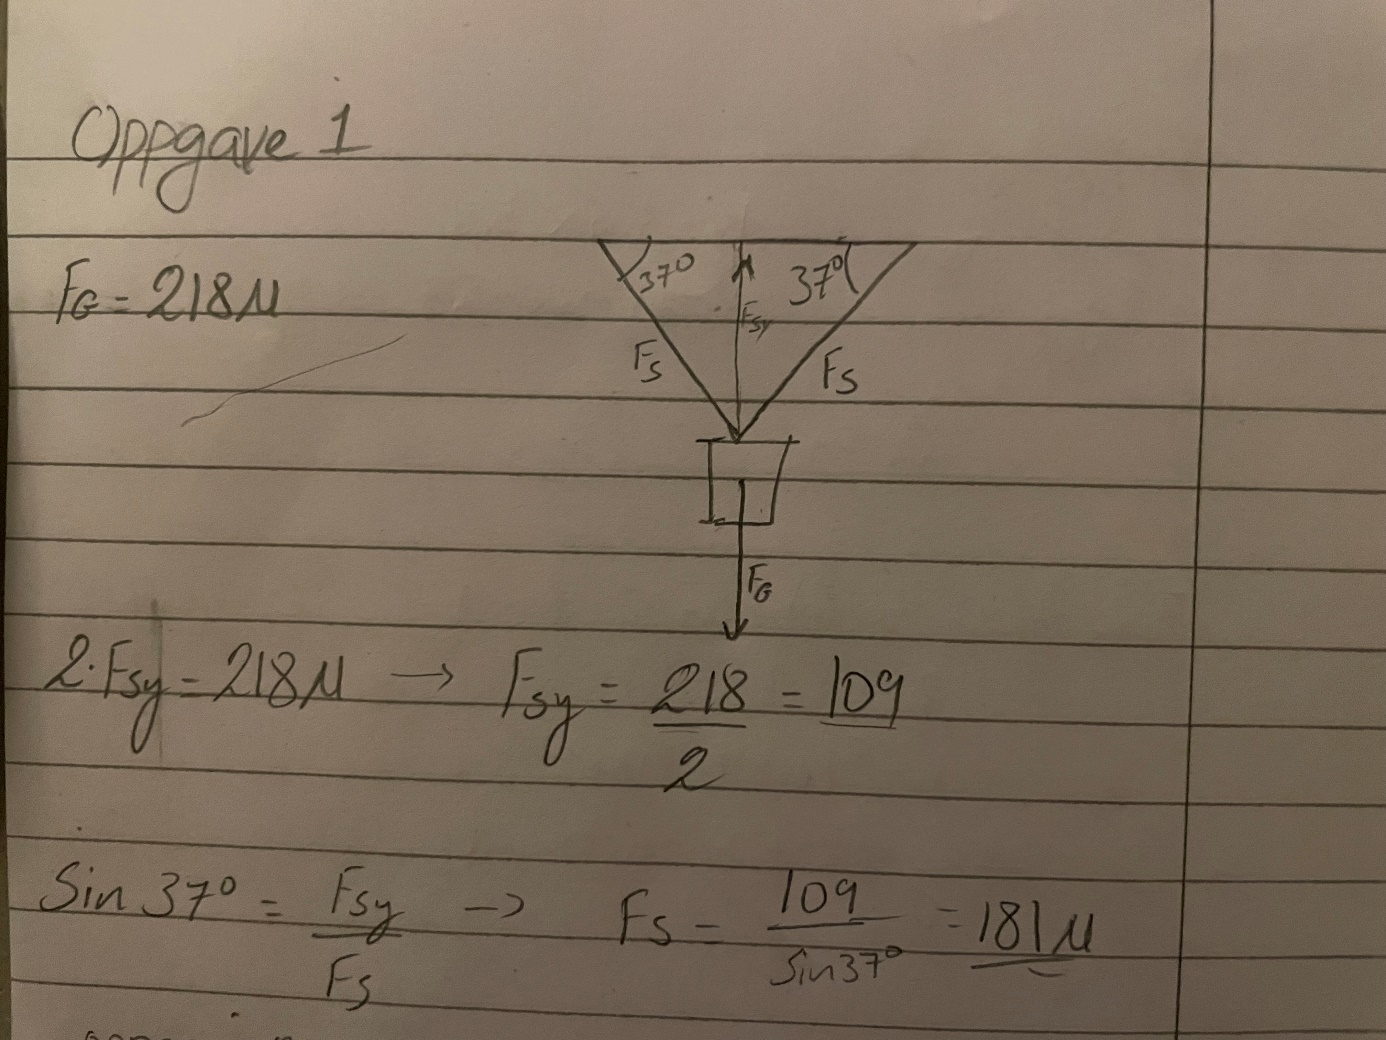 Oppgave 1
FG = 218N
37° 37°
Fsy
Fs Fs
FG
2·Fsy = 218N → Fsy = 218/2 = 109
Sin 37° = Fsy/Fs → Fs = 109/Sin37° = 181N